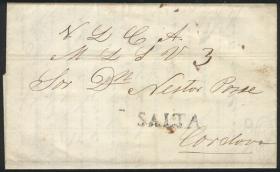 V L C A
M L S V 3
Sor Dn Nestor
SALTA
Cordova